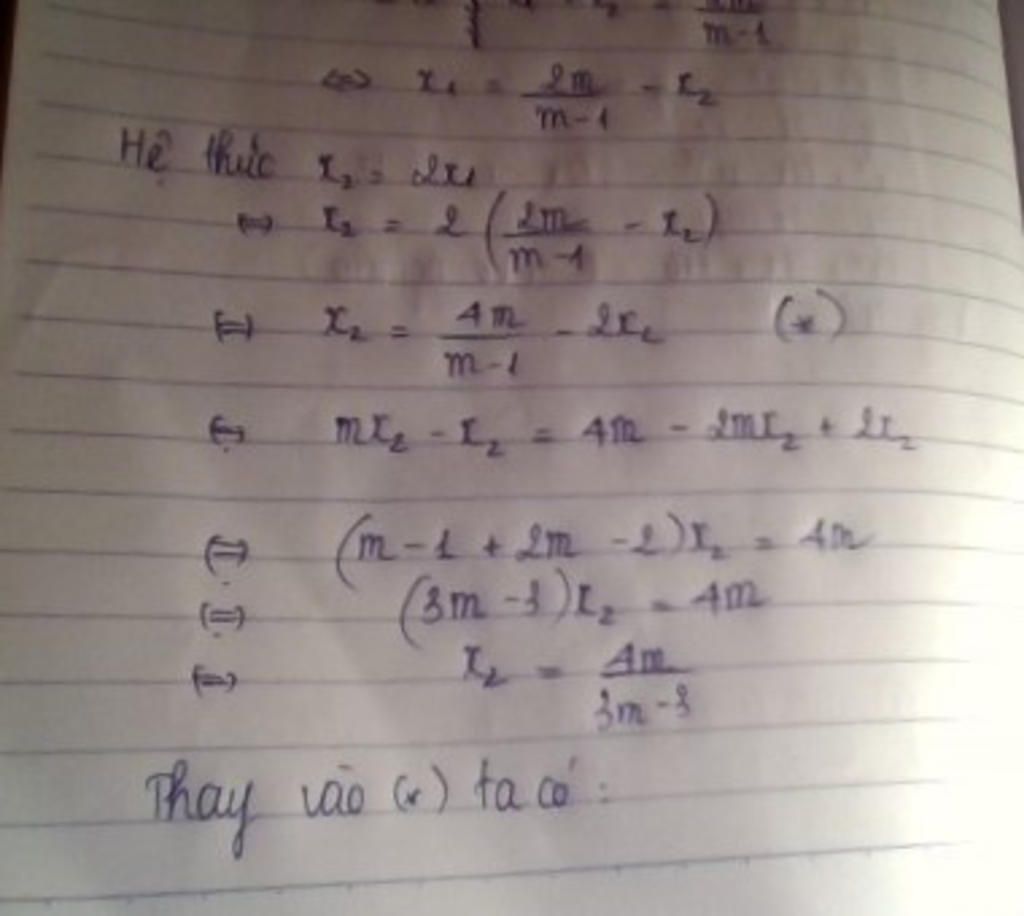 m-1
⇔ x₁ = 2m/(m-1) - x₂
Hệ thức x₂ = 2x₁
⇔ x₂ = 2(2m/(m-1) - x₂)
⇔ x₂ = 4m/(m-1) - 2x₂ (*)
⇔ mx₂ - x₂ = 4m - 2mx₂ + 2x₂
⇔ (m-1+2m-2)x₂ = 4m
⇔ (3m-3)x₂ = 4m
⇔ x₂ = 4m/(3m-3)
Thay vào (*) ta có: